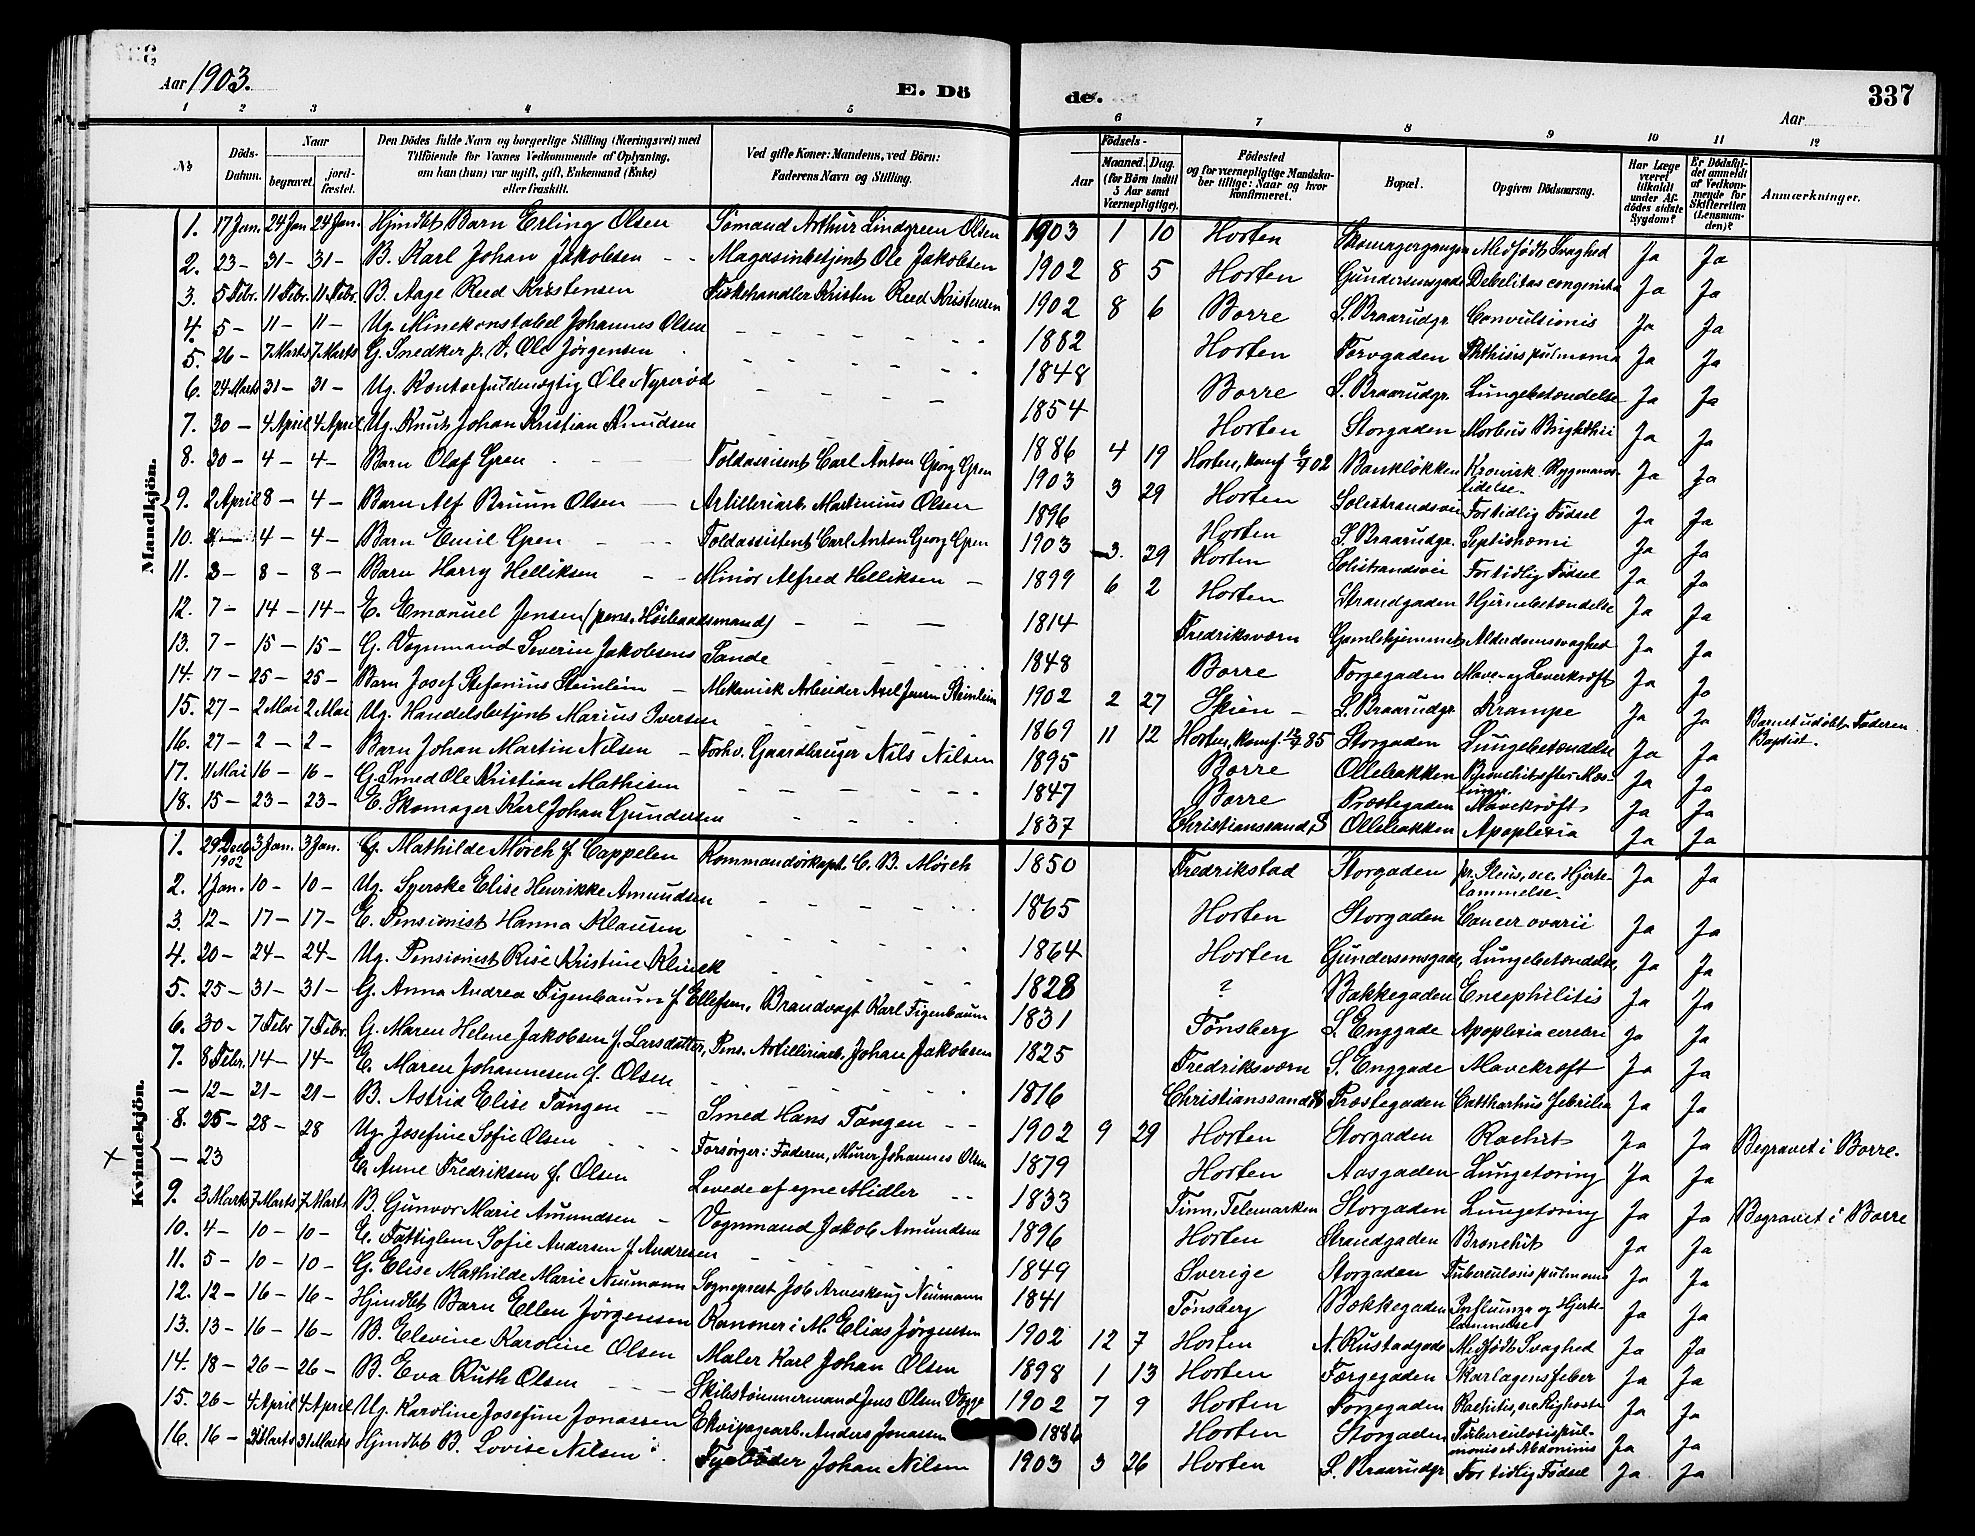 Aar 1903.
E. Dö
de.
337
Aar
1 2 3 4 5
6 7 8 9 10 11 12
№
Döds-Datum.
Naar
begravet.
jord-fæstet.
Den Dödes fulde Navn og borgerlige Stilling (Næringsvei) med Tilföiende for Voxnes Vedkommende af Oplysning, om han (hun) var ugift, gift, Enkemand (Enke) eller fraskilt.
Ved gifte Koner: Mandens, ved Börn: Faderens Navn og Stilling.
Födsels-
Aar
Maaned. Dag. (for Börn indtil 5 Aar samt Værnepligtige).
Födested og for værnepligtige Mandska-ber tillige: Naar og hvor konfirmeret.
Bopæl.
Opgiven Dödsaarsag.
Har Læge været tilkaldt under Af-dödes sidste Sygdom?
Er Dödsfal-det anmeldt af Vedkom-mende for Skifteretten (Lensman-den)?
Anmærkninger.
Mandkjön.
1. 17 Jan. 24 Jan 24 Jan. Hjmdbt Barn Erling Olsen Sømand Arthur Lindgreen Olsen 1903 1 10 Horten Skomagergangen Medfødt Svaghed Ja Ja
2. 23 – 31 – 31 – B. Karl Johan Jakobsen – – Magasinbetjent Ole Jakobsen 1902 8 5 Horten Gundersensgade Debelitas congenita Ja Ja
3. 5 Febr. 11 Febr. 11 Febr. B. Aage Reed Kristensen Fiskehandler Kristen Reed Kristensen 1902 8 6 Borre S. Braarudgr. Convulsionis Ja Ja
4. 5 – 11 – 11 – Ug. Minekonstabel Johannes Olsen – – – – 1882 Horten Torvgaden Phthisis pulmoma Ja Ja
5. 26 – 7 Marts 7 Marts G. Snedker p. V. Ole Jørgensen – – – – 1848 Borre S. Braarudgr. Lungebetændelse Ja Ja
6. 24 Marts 31 – 31 – Ug. Kontorfuldmægtig Ole Nyrerød – – – – 1854 Horten Storgaden Morbus Brigkthii Ja Ja
7. 30 – 4 April 4 April Ug. Knut Johan Kristian Knudsen – – – – 1886 4 19 Horten, konf. 6/4 02 Bankløkken Kronisk Rygmarvs-lidelse. Ja Ja
8. 30 – 4 – 4 – Barn Olaf Gren – – – Toldassisent Carl Anton Georg Gren 1903 3 29 Horten Solistrandsvei For tidlig Fødsel Ja Ja
9. 2 April 8 – 4 – Barn Alf Bruun Olsen – Artilleriarb. Martinius Olsen 1896 Horten S. Braarudgr. Septichæmi Ja Ja
10. 4 – 4 – 4 – Barn Emil Gren – – – Toldassistent Carl Anton Georg Gren 1903 3. 29 Horten Solistrandsvei For tidlig Fødsel Ja Ja
11. 3 – 8 – 8 – Barn Harry Helliksen – – Minør Alfred Helliksen – 1899 6 2 Horten Strandgaden Hjernebetændelse Ja Ja
12. 7 – 14 – 14 – E. Emanuel Jensen (pens. Høibaadsmand) – – – 1814 Fredriksværn Gamlehjemmet Alderdomssvaghed Ja Ja
13. 7 – 15 – 15 – G. Vognmand Severin Jakobsens Sande – – – 1848 Borre Torgegaden Mave- og Leverkræft Ja Ja
14. 17 – 25 – 25 – Barn Josef Stefanius Steinlein – Mekanisk Arbeider Axel Jenrn Steinlein 1902 2 27 Skien – S. Braarudgr Krampe Ja Ja Barnet udøbt. Faderen Baptist.
15. 27 – 2 Mai 2 Mai Ug. Handelsbetjent Marius Iversen – – – – 1869 11 12 Horten, konf. 12/4 85 Storgaden Lungebetændelse Ja Ja
16. 27 – 2 – 2 – Barn Johan Martin Nilsen – Forhv. Gaardbruger Nils Nilsen 1895 Borre Ollebakken Bronchit efter Mæs-linger. Ja Ja
17. 11 Mai 16 – 16 – G. Smed Ole Kristian Mathisen – – – – 1847 Borre Præstegaden Mavekræft Ja Ja
18. 15 – 23 – 23 – E. Skomager Karl Johan Gundersen – – – – 1837 Christianssand S Ollebakken Apoplexia Ja Ja
Kvindekjön.
1. 29 Decb 1902 3 Jan. 3 Jan. G. Mathilde Mörch f. Cappelen Kommandørkapt. C. B. Mörch 1850 Fredrikstad Storgaden pr. Pleuis, acc. Hjerte-lammelse. Ja Ja
2. 1 Jan. 10 – 10 – Ug. Syerske Elise Henrikke Amundsen – – – – 1865 Horten Storgaden Cancer ovarii Ja Ja
3. 12 – 17 – 17 – E. Pensionist Hanna Klausen – – – – 1864 Horten Gundersensgade, Lungebetændelse, Ja Ja
4. 20 – 24 – 24 – Ug. Pensionist Rise Kristine Klinck – – – – 1828 ? Bakkegaden Encephilitis Ja Ja
5. 25 – 31 – 31 – G. Anna Andrea Figenbaum f. Ellefsen, Brandvagt Karl Figenbaum 1831 Tönsberg S. Enggade Apoplexia cerebri Ja Ja
6. 30 – 7 Febr 7 Febr. G. Maren Helene Jakobsen f. Larsdatter, Pens. Artilleriarb. Johan Jakobsen 1825 Fredriksværn S. Enggade Mavekræft Ja Ja
7. 8 Febr. 14 – 14 – E. Maren Johannesen f. Olsen – – – – 1816 Christianssand Præstegaden Cattharhus febrilia Ja Ja
– 12 – 21 – 21 – B. Astrid Elise Tangen – – Smed Hans Tangen – – 1902 9 29 Horten Storgaden Rachit Ja Ja Begravet i Borre.
8. 25 – 28 – 28 Ug. Josefine Sofie Olsen – – Forsørger: Faderen, Murer Johannes Olsen 1879 Horten Aasgaden Lungetæring Ja Ja
× – 23 E. Anne Fredriksen f. Olsen Levede af egne Midler – – 1833 Tinn, Telemarken Storgaden Lungetæring Ja Ja Begravet i Borre
9. 3 Marts 7 Marts 7 Marts B. Gunvor Marie Amundsen – Vognmand Jakob Amundsen 1896 Horten Strandgaden Bronchit Ja Ja
10. 4 – 10 – 10 – E. Fattiglem Sofie Andersen f. Andresen – – – – 1849 Sverige Storgaden Tuberculosis pulmoms Ja Ja
11. 5 – 10 – 10 – G. Elise Mathilde Marie Neumann Sogneprest Job Arveskoug Neumann 1841 Tønsberg Bækkegaden Influenza og Hjerte-lammelse Ja Ja
12. 12 – 16 – 16 – Hjmdbt Barn Ellen Jørgensen Kanoner i M. Elias Jørgensen 1902 12 7 Horten N. Rustadgade Medfødt Svaghed Ja Ja
13. 13 – 16 – 16 – B. Elevine Karoline Olsen Maler Karl Johan Olsen 1898 1 13 Horten Færgegaden Skarlagensfeber Ja Ja
14. 18 – 26 – 26 – B. Eva Ruth Olsen – – – Skibstømmermand Jens Olsen Vegge 1902 7 9 Horten Torgegaden Rachitis, acc Kighoste Ja Ja
15. 26 – 4 April 4 April Ug. Karoline Josefine Jonassen Ekvipagearb. Anders Jonassen 1886 Horten Storgaden Tuberculosis pul-monis et Abdominis Ja Ja
16. 16 – 31 Marts 31 Marts Hjmdbt B. Lovise Nilsen Fyrbøder Johan Nilsen 1903 3 26 Horten S. Braarudgr For tidlig Fødsel Ja Ja